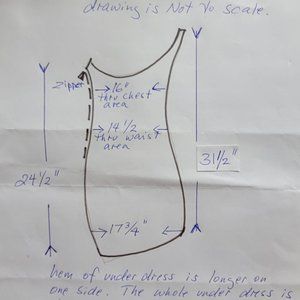 drawing is Not to scale.
zipper
16"
thru chest
area
14 1/2
thru waist
area
24 1/2"
31 1/2"
17 3/4"
hem of under dress is longer on
one side. The whole under dress is